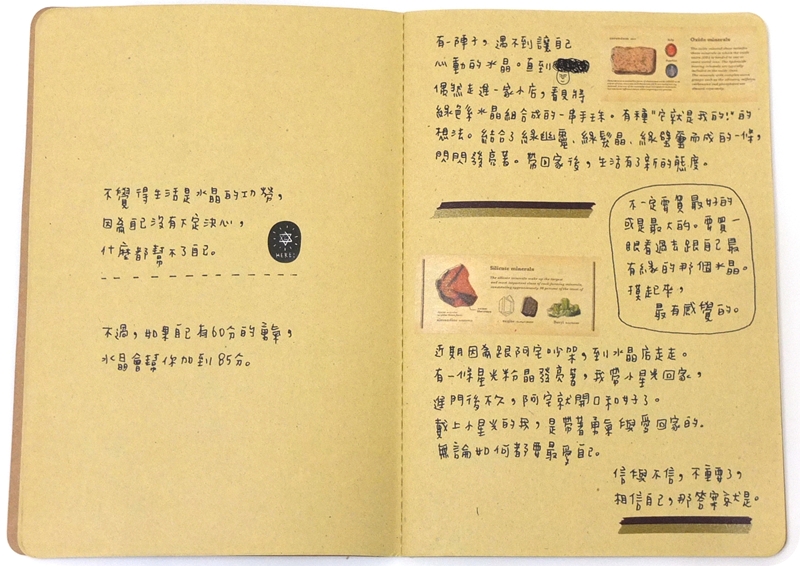 不覺得生活是水晶的功勞，
因為自己沒有下定決心，
什麼都幫不了自己。
HERE:
不過，如果自己有60分的勇氣，
水晶會幫你加到85分。
有一陣子，遇不到讓自己
心動的水晶。直到
偶然走進一家小店，看見將
綠色系水晶組合成的一串手珠。有種"它就是我的!"的
想法。結合了綠幽靈、綠髮晶、綠碧璽而成的一條，
閃閃發亮著。帶回家後，生活有了新的態度。
Oxide minerals
不一定要買最好的
或是最大的。要買一
眼看過去跟自己最
有緣的那個水晶。
摸起來，
最有感覺的。
Silicate minerals
近期因為跟阿宅吵架，到水晶店走走。
有一條星光粉晶發亮著，我帶小星光回家，
進門後不久，阿宅就開口和好了。
戴上小星光的我，是帶著勇氣與愛回家的。
無論如何都要最愛自己。
信與不信，不重要了，
相信自己，那答案就是。